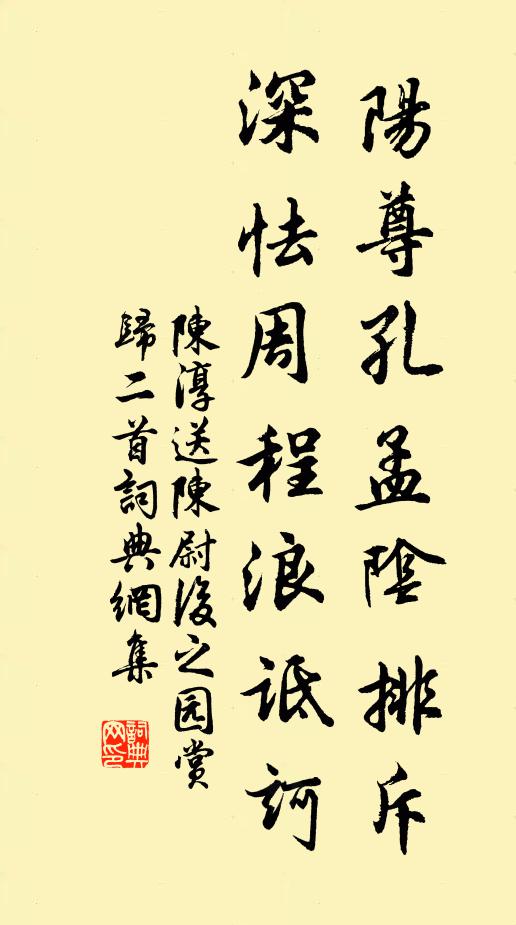 陽尊孔孟陰排斥
深怯周程浪詆訶
陳淳送陳尉浚之园赏
歸二首詞典網集
詞典網印